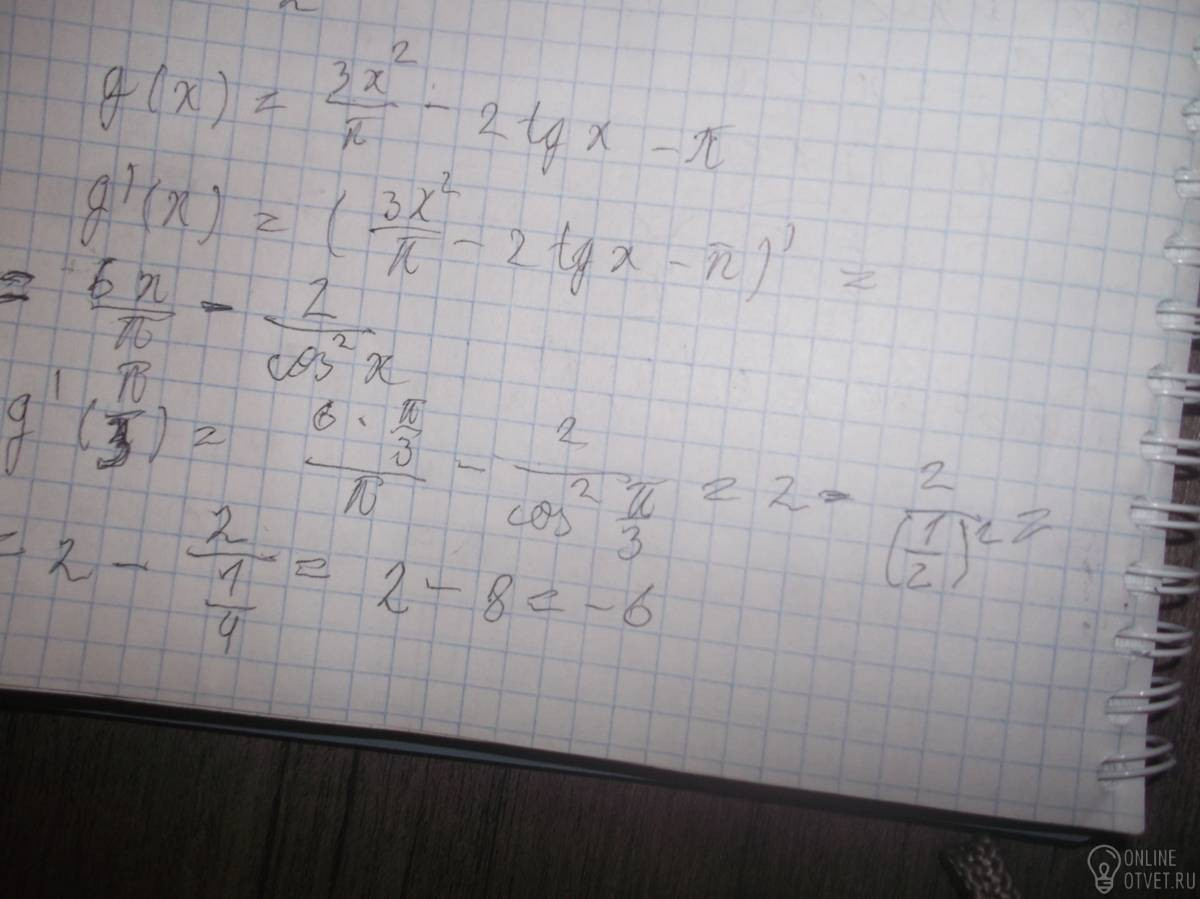 g(x) = 3x²/π - 2 tg x - π
g'(x) = (3x²/π - 2 tg x - π)' =
= 6x/π - 2/cos² x
g'(π/3) = (6 · π/3)/π - 2/(cos² π/3) = 2 - 2/(1/2)² =
= 2 - 2/(1/4) = 2 - 8 = -6
ONLINE
OTVET.RU